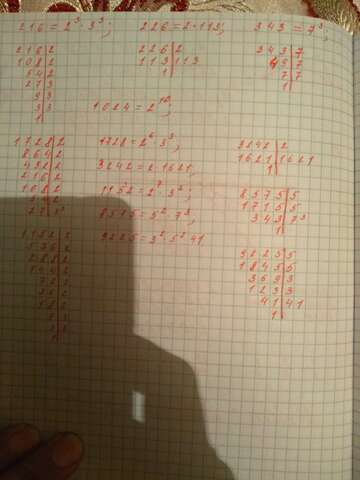 216 = 2³ · 3³;
226 = 2 · 113;
343 = 7³;
216|2
108|2
54|2
27|3
9|3
3|3
1|
226|2
113|113
1|
343|7
49|7
7|7
1|
1024 = 2¹⁰;
1728|2
864|2
432|2
216|2
108|2
54|2
27|3³
1728 = 2⁶ · 3³;
3242 = 2 · 1621;
1152 = 2⁷ · 3²;
8575 = 5² · 7³;
3242|2
1621|1621
1|
8575|5
1715|5
343|7³
1|
1152|2
576|2
288|2
144|2
72|2
1|
9225 = 3² · 5² · 41
9225|5
1845|5
369|3
123|3
41|41
1|